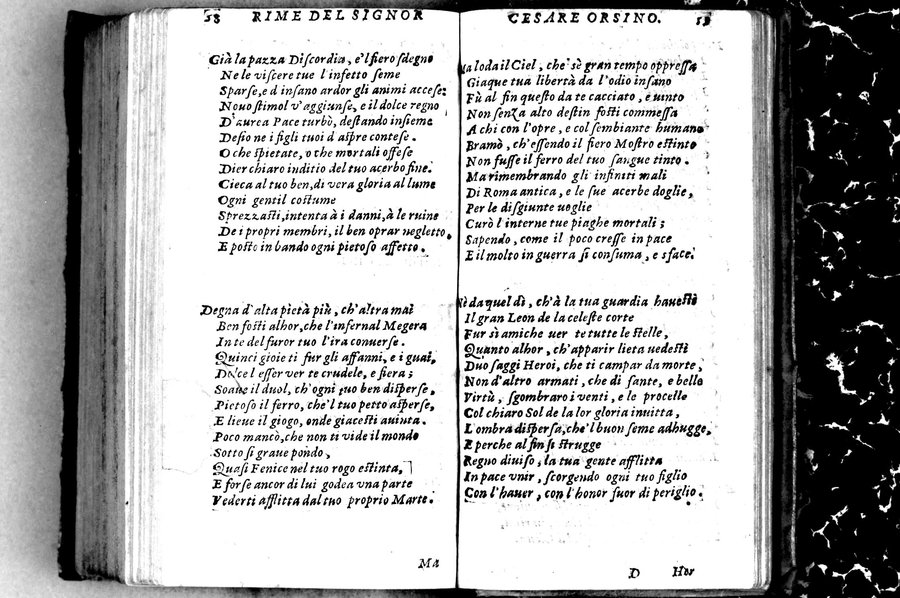 58 RIME DEL SIGNOR
Già la pazza Discordia, e'l fiero sdegno
Ne le viscere tue l'infetto seme
Sparse, e d'insano ardor gli animi accese:
Nouo stimol v'aggiunse, e il dolce regno
D'aurea Pace turbò, destando insieme
Desio ne i figli tuoi d'aspre contese.
O che spietate, o che mortali offese
Dier chiaro inditio del tuo acerbo fine.
Cieca al tuo ben, di vera gloria al lume
Ogni gentil costume
Sprezzasti, intenta à i danni, à le ruine
De i propri membri, il ben oprar negletto,
E posto in bando ogni pietoso affetto.
Degna d'alta pietà più, ch'altra mai
Ben fosti alhor, che l'infernal Megera
In te del furor tuo l'ira conuerse.
Quinci gioie ti fur gli affanni, e i guai,
Dolce l'esser ver te crudele, e fiera;
Soaue il duol, ch'ogni tuo ben disperse,
Pietoso il ferro, che'l tuo petto asperse,
E lieue il giogo, onde giacesti auinta.
Poco mancò, che non ti vide il mondo
Sotto sì graue pondo,
Quasi Fenice nel tuo rogo estinta,
E forse ancor di lui godea vna parte
Vederti afflitta dal tuo proprio Marte.
Ma
CESARE ORSINO. 59
Ma loda il Ciel, che sè gran tempo oppressa
Giaque tua libertà da l'odio insano
Fù al fin questo da te cacciato, e uinto
Non senza alto destin fosti commessa
A chi con l'opre, e col sembiante humano
Bramò, ch'essendo il fiero Mostro estinto
Non fusse il ferro del tuo sangue tinto.
Ma rimembrando gli infiniti mali
Di Roma antica, e le sue acerbe doglie,
Per le disgiunte uoglie
Curò l'interne tue piaghe mortali;
Sapendo, come il poco cresse in pace
E il molto in guerra si consuma, e sface.
Nè da quel dì, ch'à la tua guardia hauesti
Il gran Leon de la celeste corte
Fur sì amiche uer te tutte le stelle,
Quanto alhor, ch'apparir lieta uedesti
Duo saggi Heroi, che ti campar da morte,
Non d'altro armati, che di sante, e belle
Virtù, sgombraro i venti, e le procelle
Col chiaro Sol de la lor gloria inuitta,
L'ombra dispersa, che'l buon seme adhugge,
E perche al fin si strugge
Regno diuiso, la tua gente afflitta
In pace vnir, scorgendo ogni tuo figlio
Con l'hauer, con l'honor fuor di periglio.
D Hor